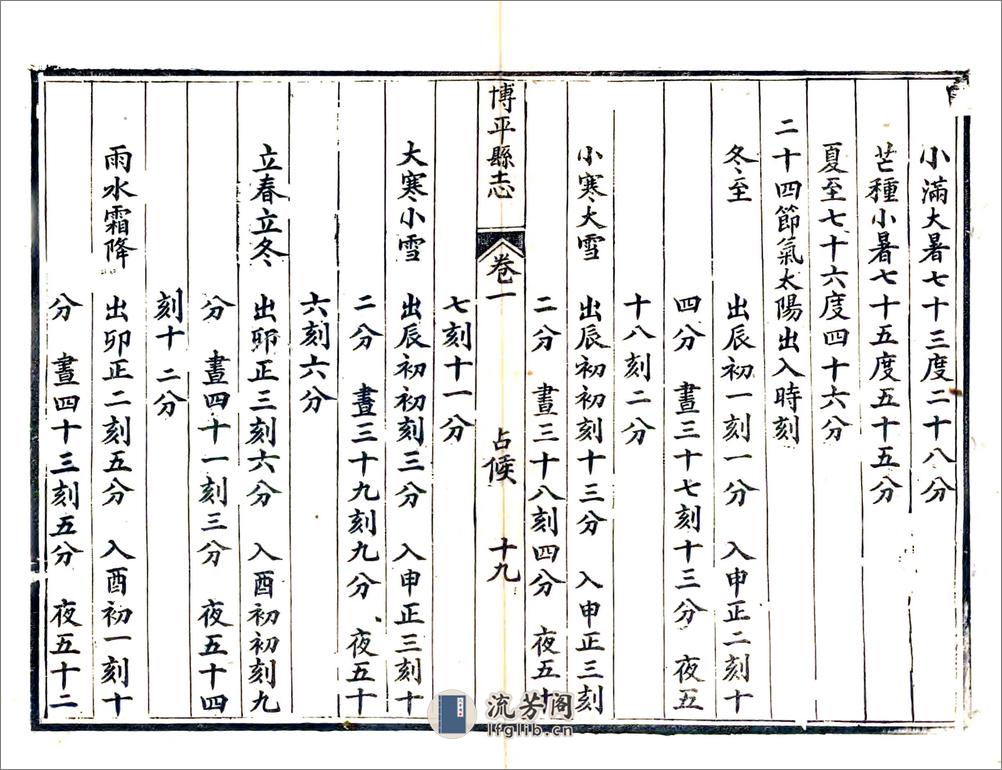 小滿大暑七十三度二十八分
芒種小暑七十五度五十五分
夏至七十六度四十六分
二十四節氣太陽出入時刻
冬至 出辰初一刻一分 入申正二刻十
四分 晝三十七刻十三分 夜五
十八刻二分
小寒大雪 出辰初初刻十三分 入申正三刻
二分 晝三十八刻四分 夜五十
七刻十一分
博平縣志 卷一 占候 十九
大寒小雪 出辰初初刻三分 入申正三刻十
二分 晝三十九刻九分 夜五十
六刻六分
立春立冬 出卯正三刻六分 入酉初初刻九
分 晝四十一刻三分 夜五十四
刻十二分
雨水霜降 出卯正二刻五分 入酉初一刻十
分 晝四十三刻五分 夜五十二
流芳阁
lfglib.cn